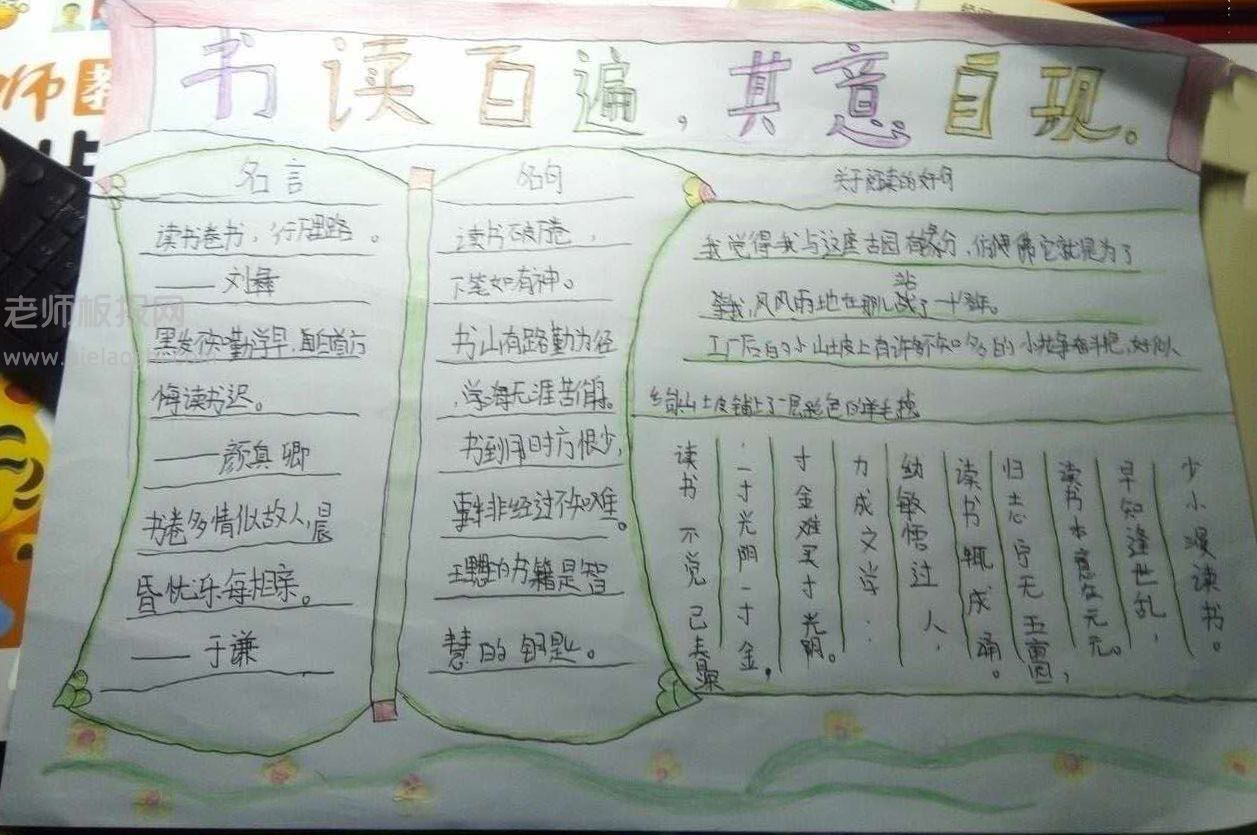 书读百遍，其意自现。
名言
读书卷书，行万里路。
——刘彝
黑发不知勤学早，白首方
悔读书迟。
——颜真卿
书卷多情似故人，晨
昏忧乐每相亲。
——于谦
名句
读书破万卷，
下笔如有神。
书山有路勤为径
，学海无涯苦作舟。
书到用时方恨少，
事非经过不知难。
的书籍是智
慧的钥匙。
关于阅读的好句
我觉得我与这座古园有缘分，仿佛它就是为了
等我，风风雨雨地在那儿站了一十多年。
工厂后的小山土皮上有许多不知名的小花争奋斗艳，好似人
给山土皮铺上了一层彩色的羊毛毯
少小漫读书。
早知逢世乱，
读书本意在元元。
归志宁无五亩园，
读书辄成诵。
幼敏悟过人，
力成文学：
寸金难买寸光阴。
一寸光阴一寸金，
读书不觉已春深
老师板报网